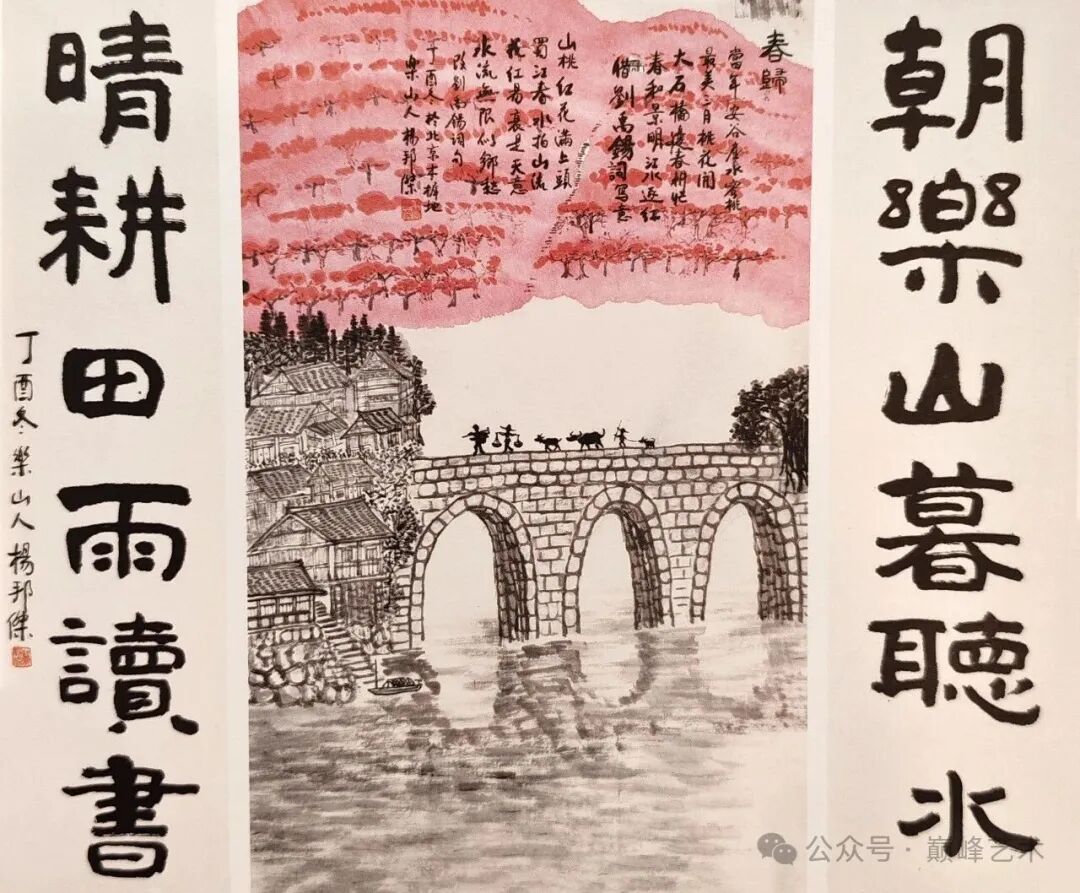 朝樂山暮聽水
春歸
當年安谷產水蜜桃
最美三月桃花開
大石橋邊春耕忙
春和景明江水返紅
借劉禹錫詞寫意
山桃紅花滿上頭
蜀江春水拍山流
花紅易衰是天意
水流無限似鄉愁
改劉禹錫詞句
丁酉冬於北京木樨地
樂山人楊邦傑
晴耕田雨讀書
丁酉冬樂山人楊邦傑
公众号 · 巅峰艺术